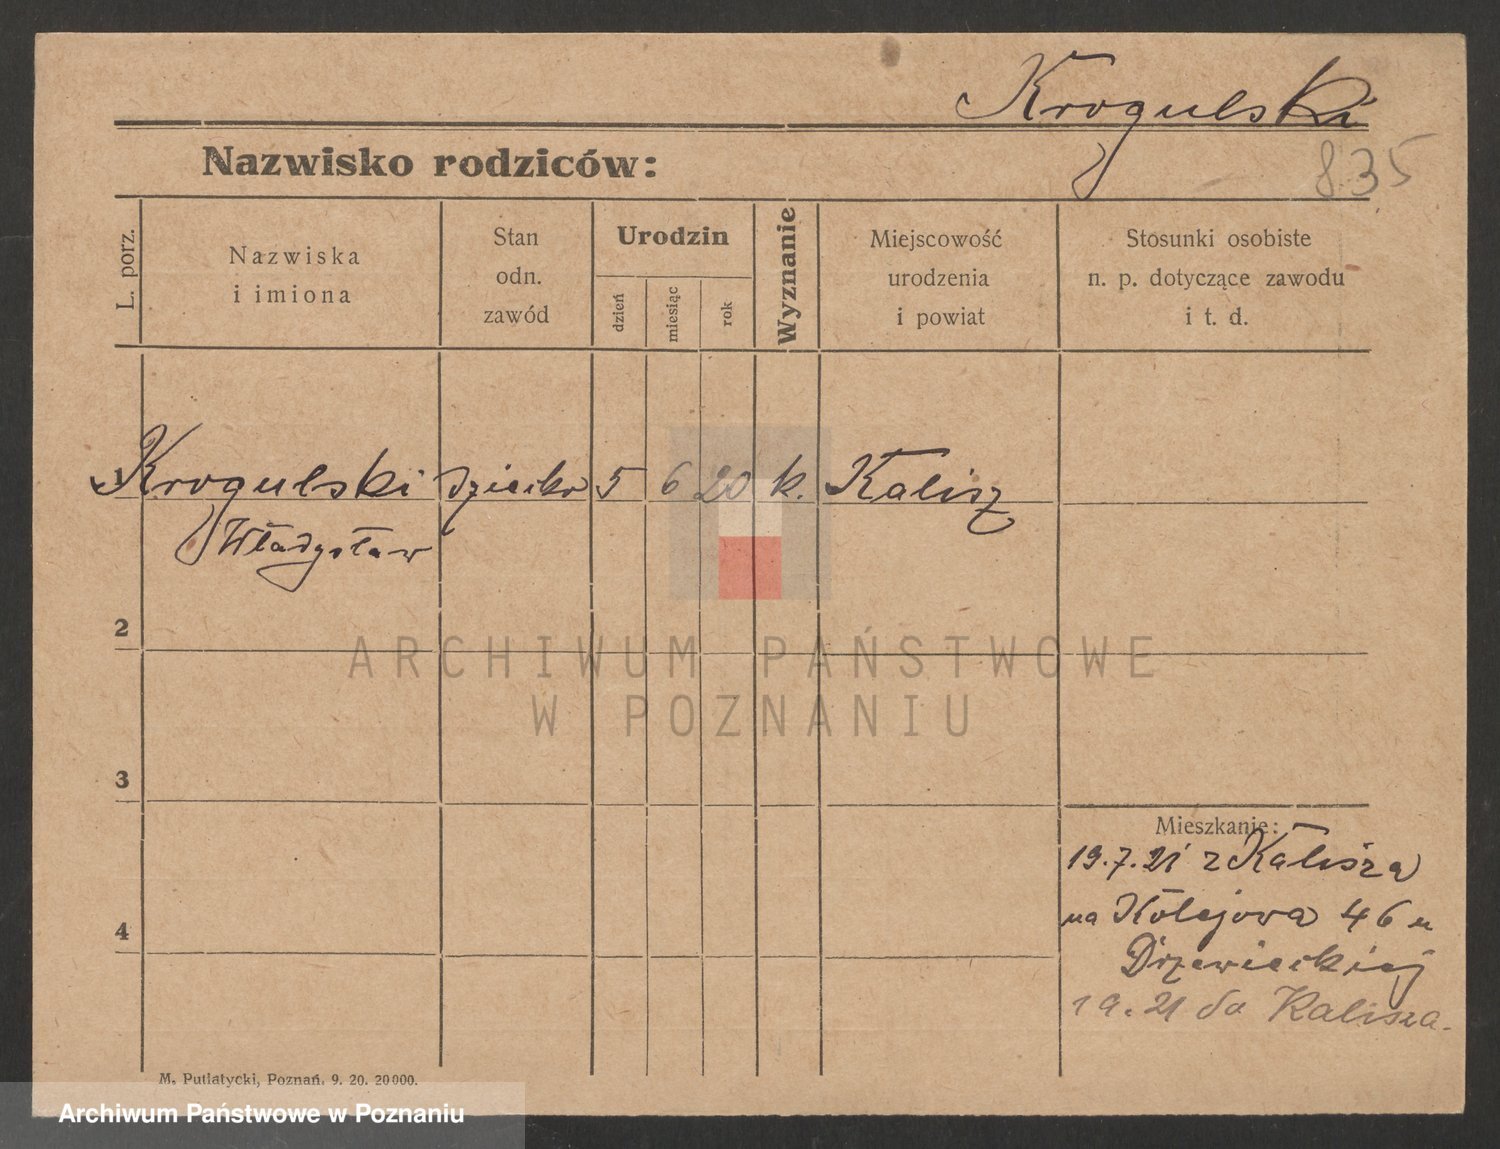 Krogulski
Nazwisko rodziców:
835
L. porz.
Nazwiska
i imiona
Stan
odn.
zawód
Urodzin
dzień
miesiąc
rok
Wyznanie
Miejscowość
urodzenia
i powiat
Stosunki osobiste
n. p. dotyczące zawodu
i t. d.
1 Krogulski dziecko 5 6 20 k. Kalisz
Władysław
2
3
4
Mieszkanie:
19.7.21 z Kalisza
na Kolejowa 46 u
Drzewieckiej
19.21 do Kalisza.
M. Putiatycki, Poznań. 9. 20. 20000.
ARCHIWUM PAŃSTWOWE
W POZNANIU
Archiwum Państwowe w Poznaniu